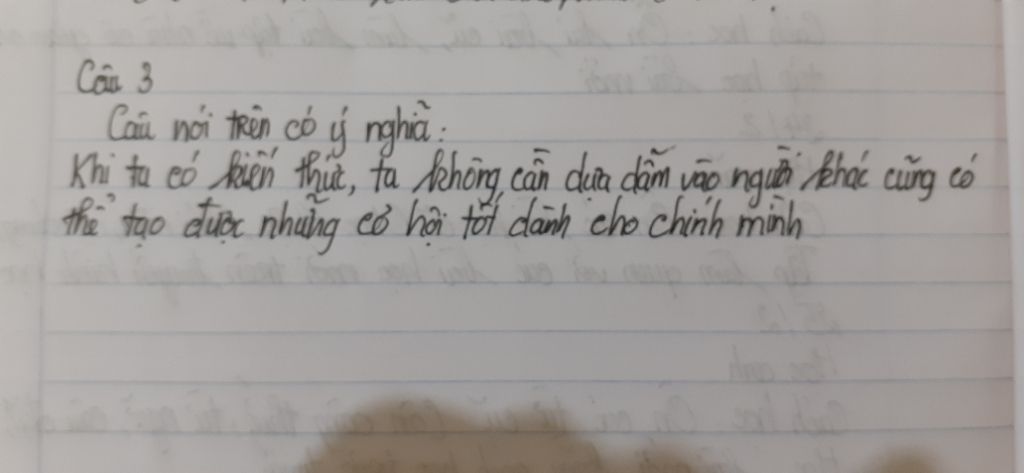 Câu 3
Câu nói trên có ý nghĩa:
Khi ta có kiến thức, ta không cần dựa dẫm vào người khác cũng có
thể tạo được những cơ hội tốt dành cho chính mình